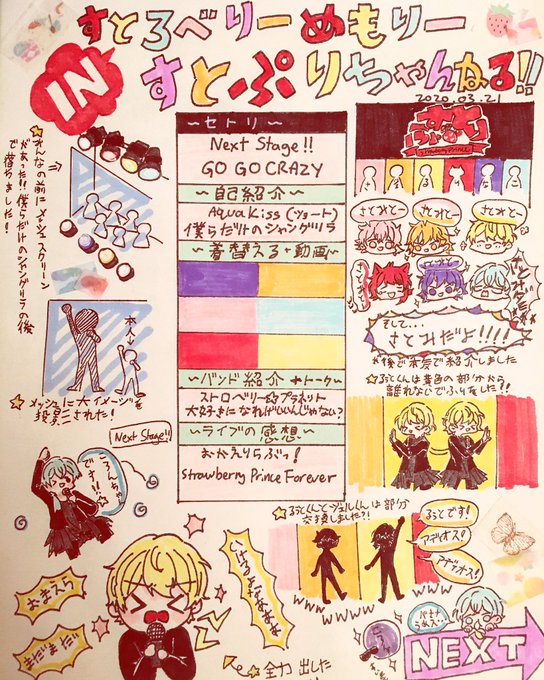 すとろべりーめもりー
IN
すとぷりちゃんねる!!
2020.03.21
〜セトリ〜
Next Stage!!
GO GO CRAZY
〜自己紹介〜
Aqua Kiss (ショート)
僕らだけのシャングリラ
〜着替える・動画〜
〜バンド紹介 トーク〜
ストロベリー☆プラネット
大好きになればいいんじゃない?
〜ライブの感想〜
おかえりらぶっ!
Strawberry Prince Forever
☆みんなの前にメッシュスクリーン
があった!!僕らだけのシャングリラの後
で落ちました!
本人
☆メッシュに大イメージを
投影された!
Strawberry Prince
さとみとー
さとみとー
さとみとー
そして...
さとみだよ!!!!
*後で本気で紹介しました
☆るぅとくんは黄色の部分から
離れないでふりをした!!
Next Stage!!
ころんくん
でーす!!
☆るぅとくんとジェルくんは部分
交換しました?!
るぅとです!
アディオス!
アディオス!
www
wwww
www
おまえら
まだまだ
いけるよなあああ
☆全力出した
NEXT